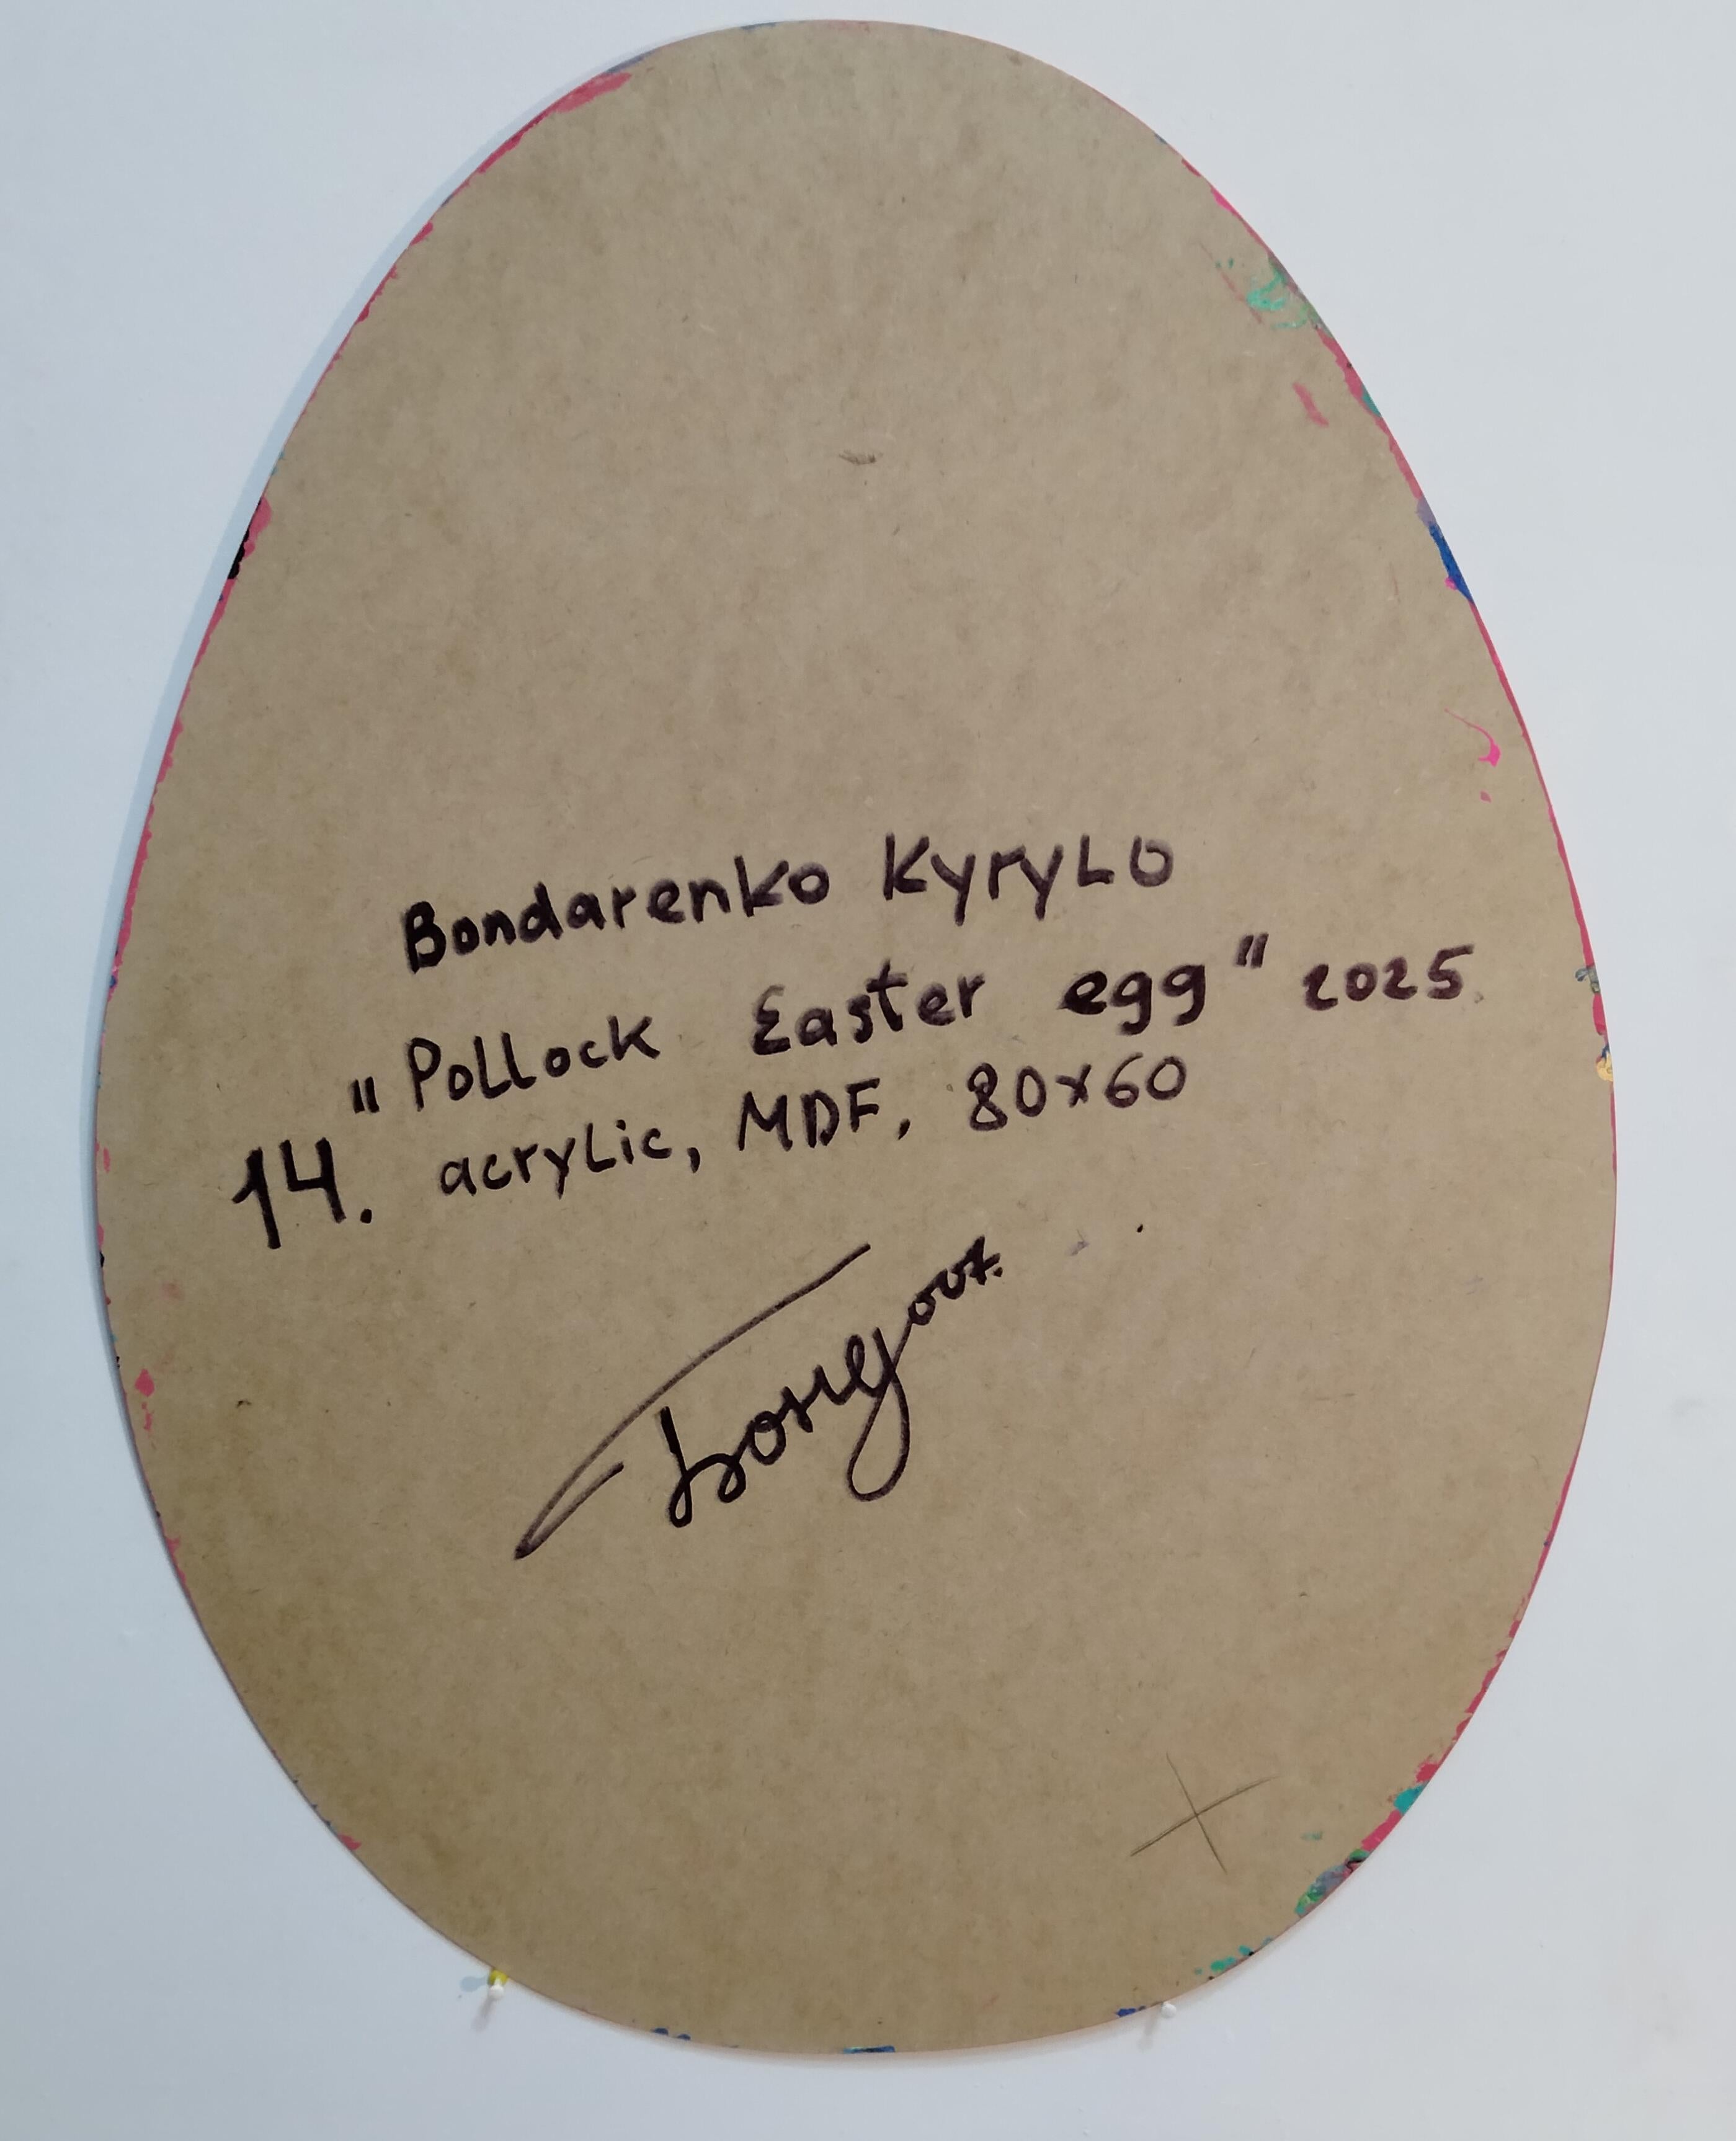 Bondarenko Kyrylo
"Pollock Easter egg" 2025.
14. acrylic, MDF, 80x60